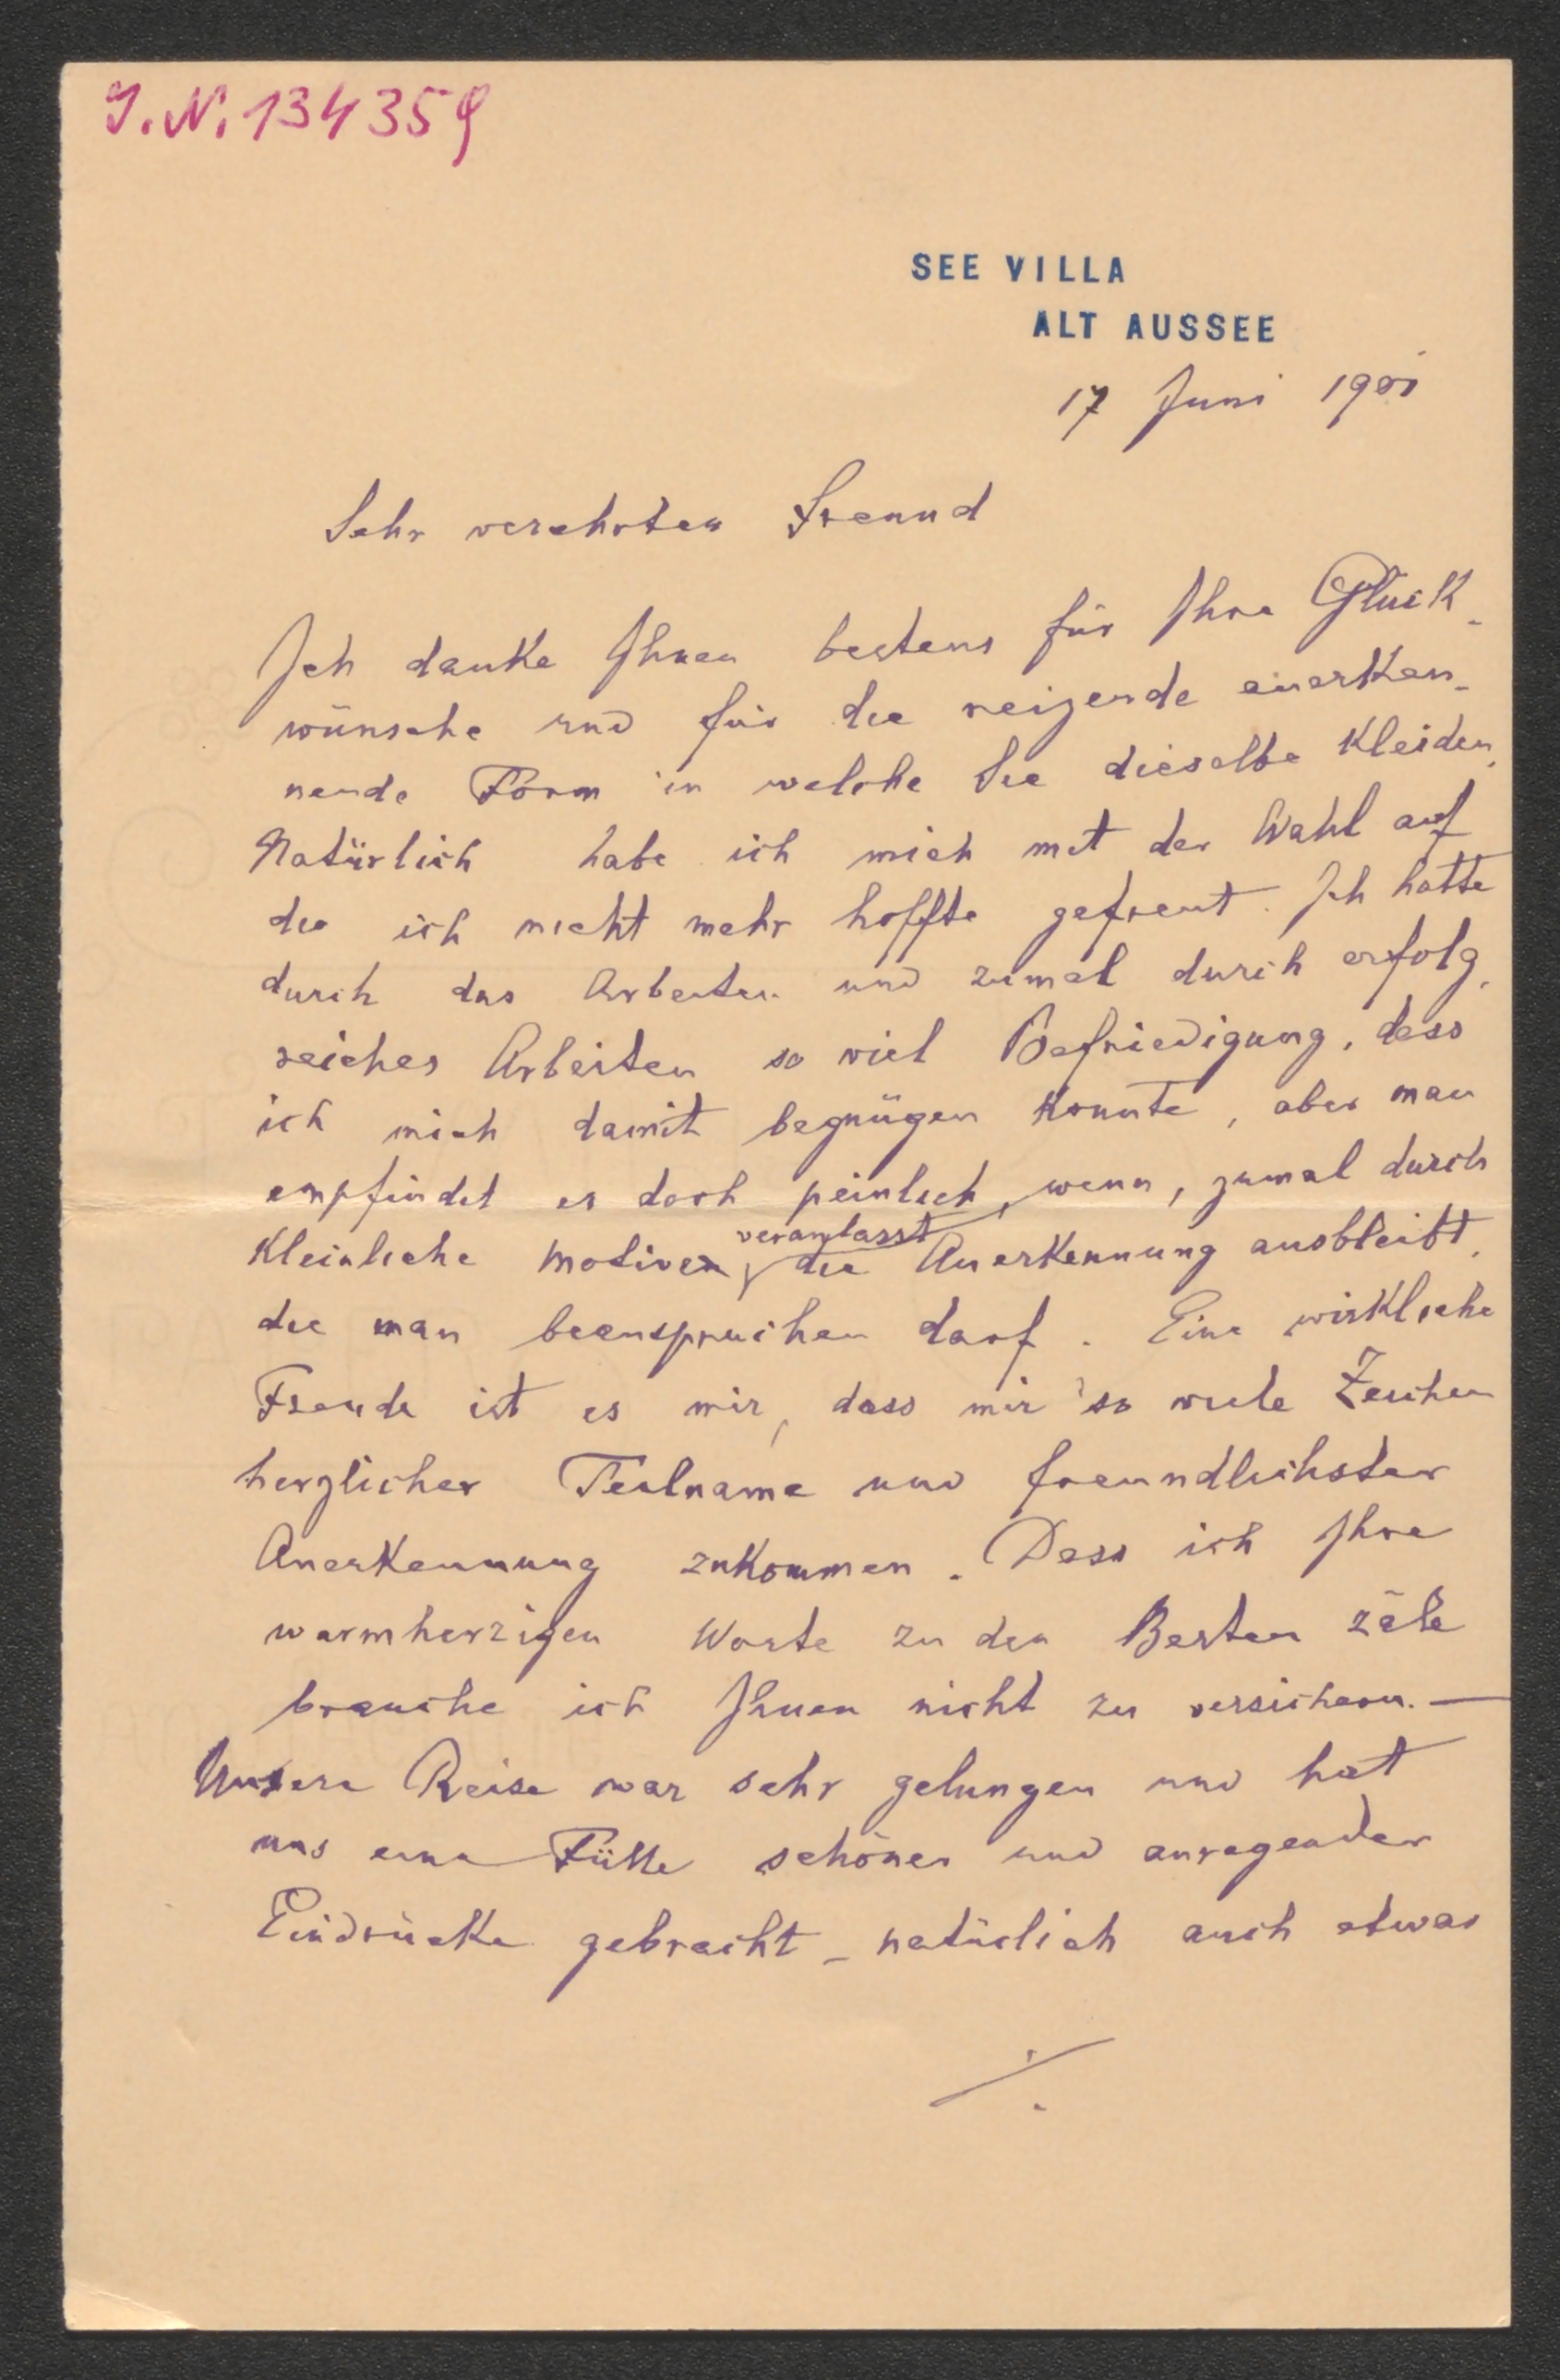 J.N. 134359
SEE VILLA
ALT AUSSEE
17 Juni 1901
Sehr verehrter Freund
Ich danke Ihnen bestens für Ihre Glück-
wünsche und für die reizende anerken-
nende Form in welche Sie dieselbe kleiden.
Natürlich habe ich mich mit der Wahl auf
die ich nicht mehr hoffte gefreut. Ich hatte
durch das Arbeiten und zumal durch erfolg-
reiches Arbeiten so viel Befriedigung, dass
ich mich damit begnügen konnte, aber man
empfindet es doch peinlich, wenn, zumal durch
kleinliche Motive veranlasst die Anerkennung ausbleibt,
die man beanspruchen darf. Eine wirkliche
Freude ist es mir, dass mir so viele Zeichen
herzlicher Teilname und freundlichster
Anerkennung zukommen. Dass ich Ihre
warmherzigen Worte zu den Besten zäle
brauche ich Ihnen nicht zu versichern. —
Unsere Reise war sehr gelungen und hat
uns eine Fülle schöner und anregender
Eindrücke gebracht – natürlich auch etwas
./.